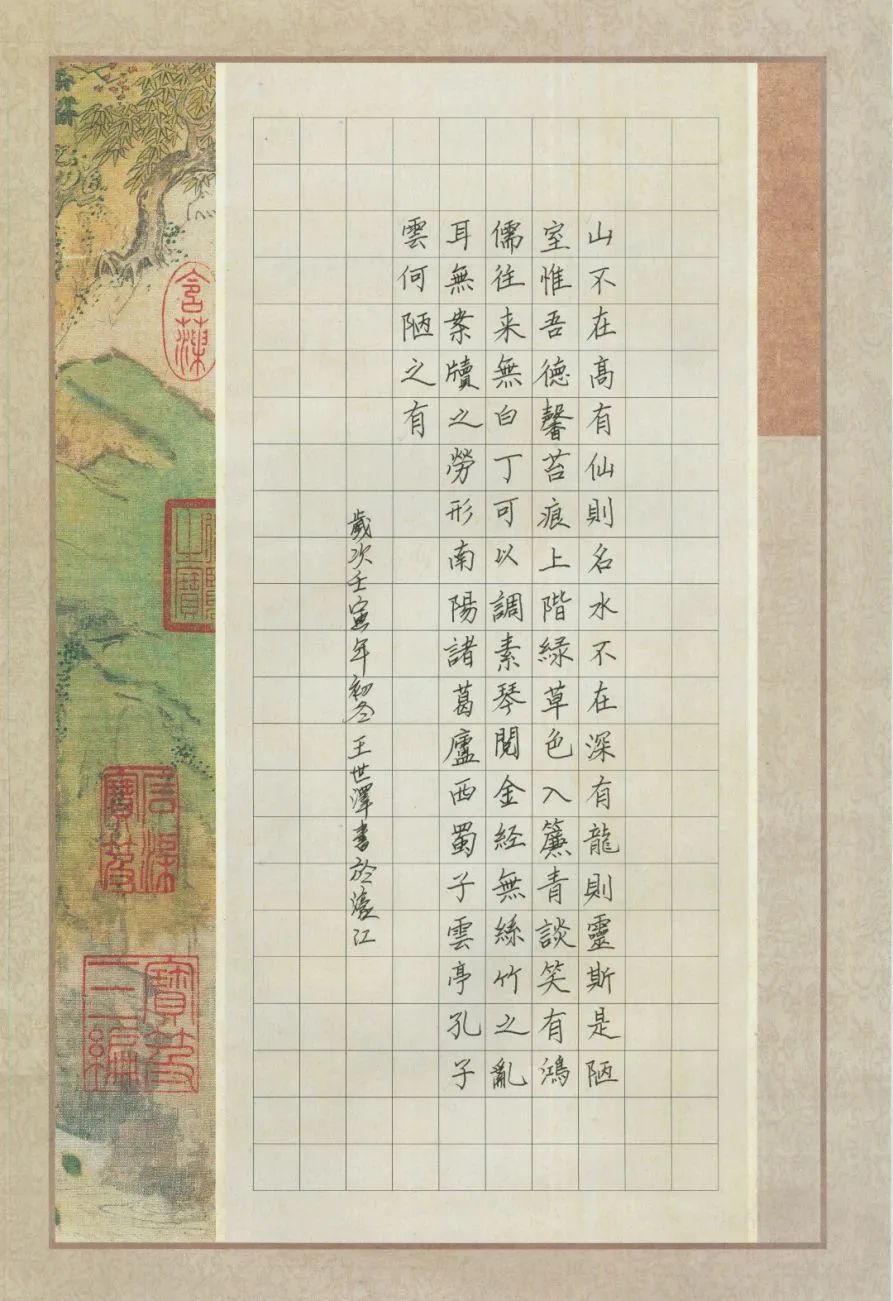 山不在高有仙則名水不在深有龍則靈斯是陋
室惟吾德馨苔痕上階緑草色入簾青談笑有鴻
儒往来無白丁可以調素琴閲金経無絲竹之亂
耳無案牘之勞形南陽諸葛廬西蜀子雲亭孔子
雲何陋之有
歲次壬寅年初冬王世澤書於濠江
寶笈
三編